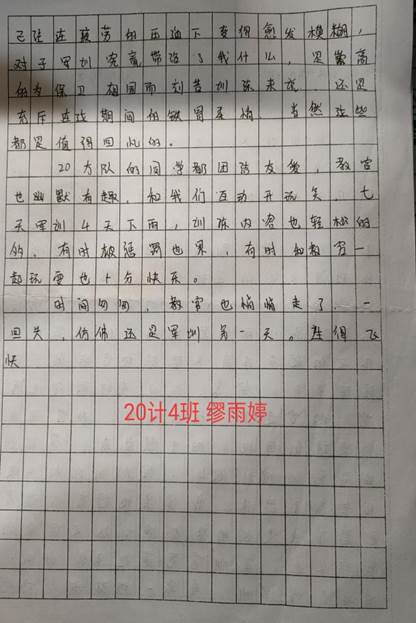 已经在疲劳的压迫下变得愈发模糊,
对于军训究竟带给了我什么,是崇高
的为保卫祖国而刻苦训练来说,还是
充斥连续期间的缺胃疼痛,当然这些
都是值得回忆的。
20方队的同学都团结友爱,教官
也幽默有趣,和我们互动开玩笑,七
天军训4天下雨,训练内容也轻松的
的,有时被惩罚也累,有时和教官一
起玩耍也十分快乐。
时间匆匆,教官也悄悄走了,一
回头,仿佛还是军训第一天。过得飞
快
20计4班 缪雨婷